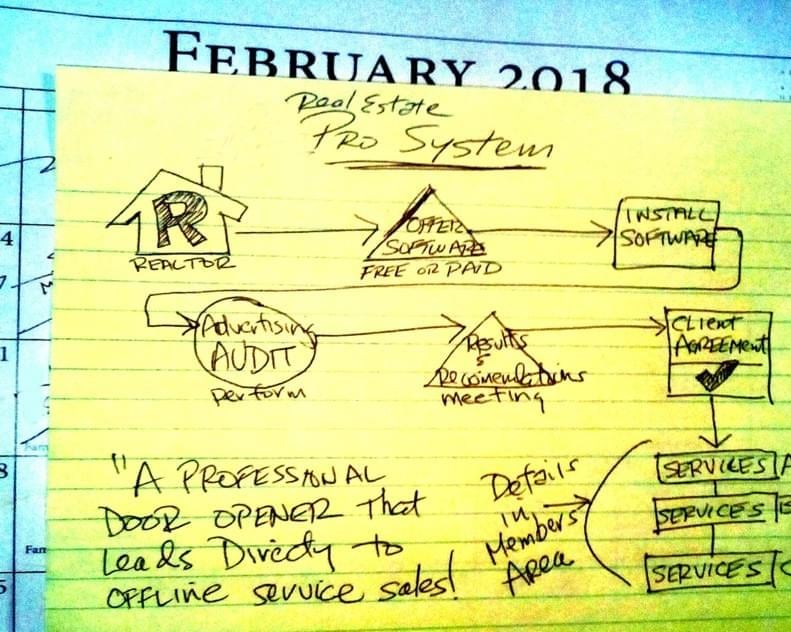 FEBRUARY 2018
Real Estate
PRO SYSTEM
R
REALTOR
OFFER
SOFTWARE
FREE OR PAID
INSTALL
SOFTWARE
Advertising
AUDIT
perform
Results
&
Recomendations
meeting
CLIENT
AGREEMENT
SERVICES A
SERVICES B
SERVICES C
Details
in
Members
Area
"A PROFESSIONAL
DOOR OPENER That
Leads Directly to
OFFLINE service sales!
4
7
1
8
Fam
5